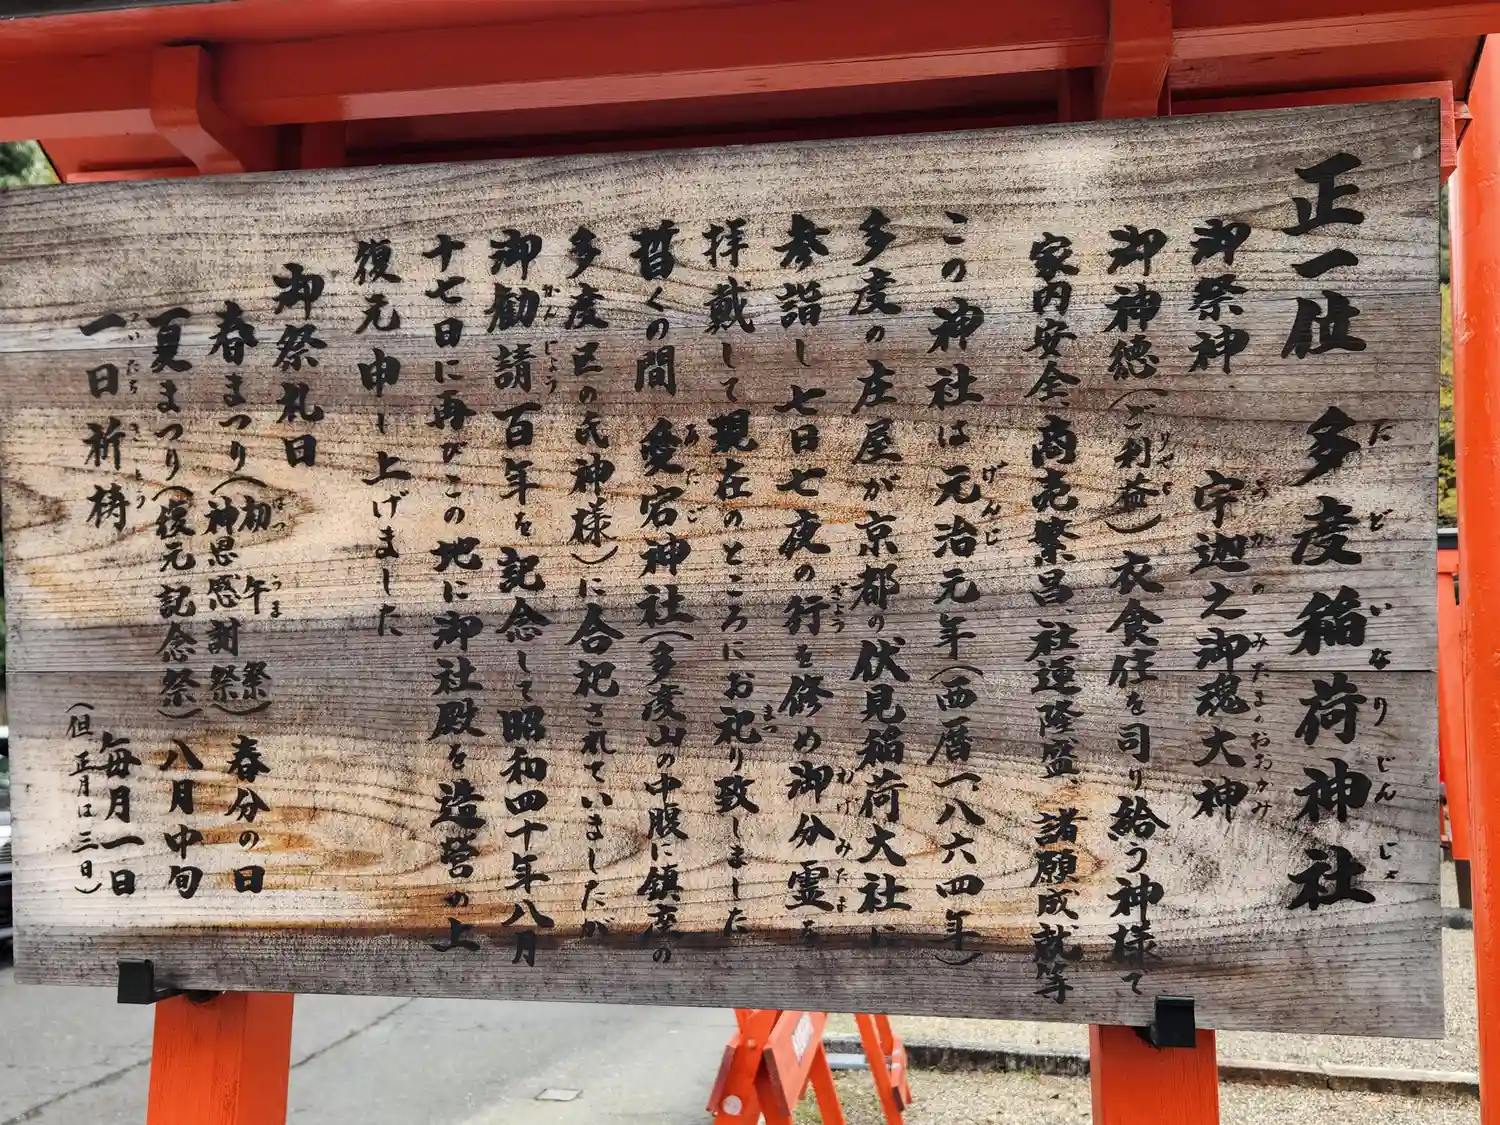 正一位 多度稲荷神社
御祭神 宇迦之御魂大神
御神徳(ご利益) 衣食住を司り給う神様で
家内安全、商売繁昌、社運隆盛、諸願成就等
この神社は元治元年(西暦一八六四年)
多度の庄屋が京都の伏見稲荷大社に
参詣し七日七夜の行を修め御分霊を
拝戴して現在のところにお祀り致しました
暫くの間 愛宕神社(多度山の中腹に鎮座の
多度区の氏神様)に合祀されていましたが
御勧請百年を記念して昭和四十年八月
十七日に再びこの地に御社殿を造営の上
復元申し上げました
御祭礼日
春まつり(初午祭) 春分の日
(神恩感謝祭)
夏まつり(復元記念祭) 八月中旬
一日祈祷 毎月一日
(但 正月は三日)